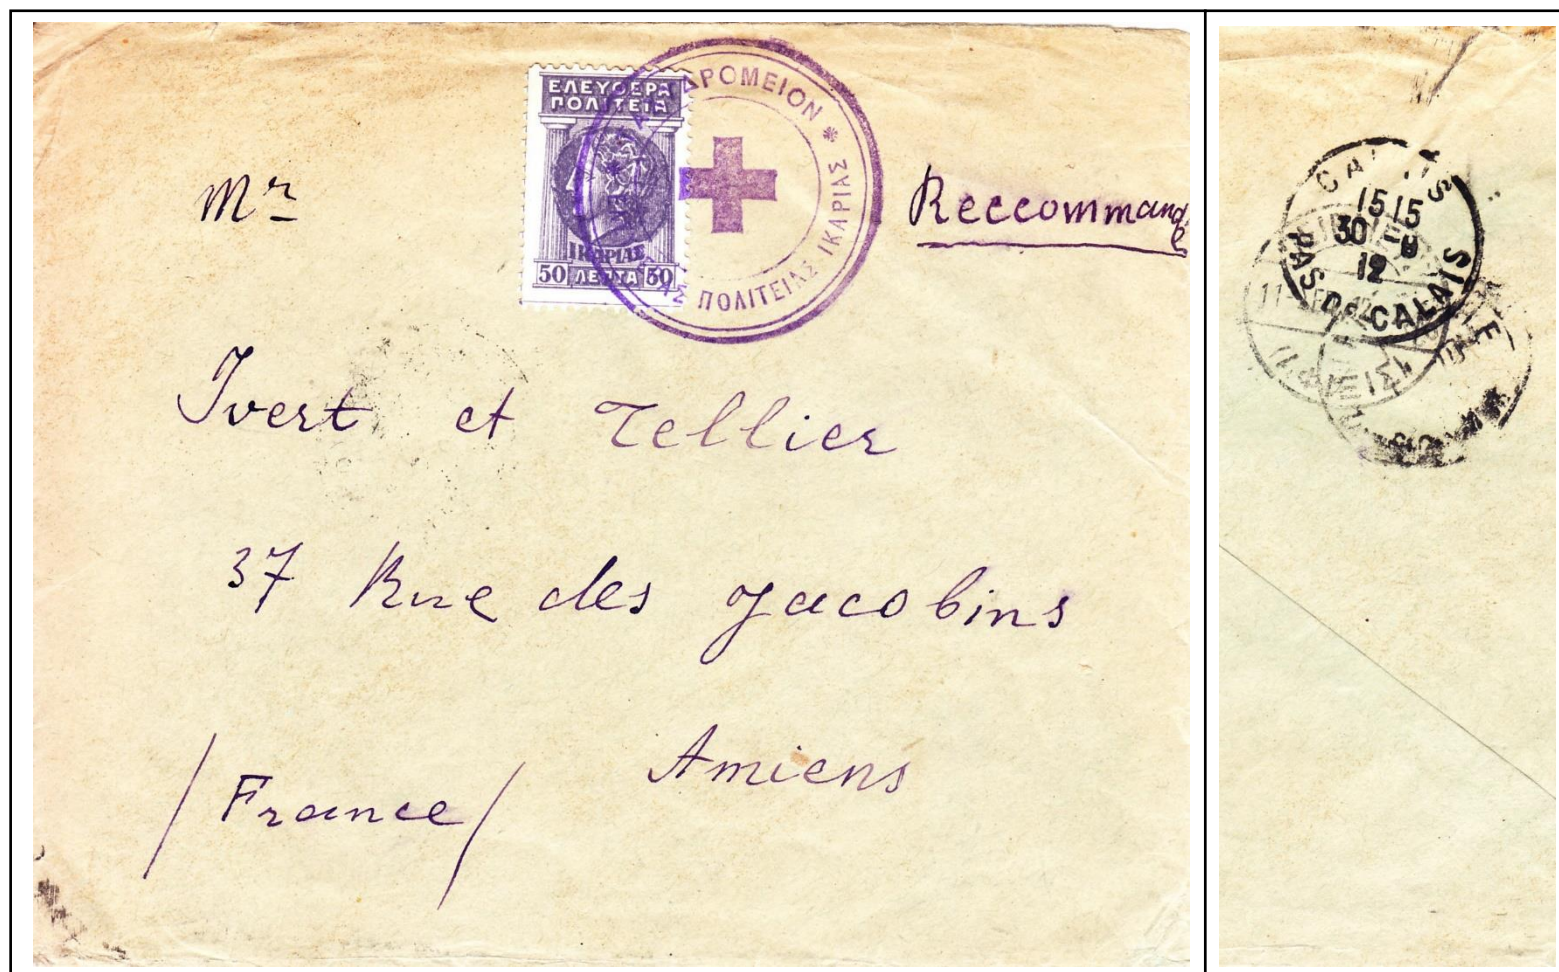 ΕΛΕΥΘΕΡΑ
ΠΟΛΙΤΕΙΑ
ΙΚΑΡΙΑΣ
50 ΛΕΠΤΑ 50
ΠΟΛΙΤΕΙΑΣ ΙΚΑΡΙΑΣ
Mr
Reccommande
Ivert et Tellier
37 Rue des Jacobins
Amiens
/France/
CALAIS
15 15
30
12
PAS DE CALAIS